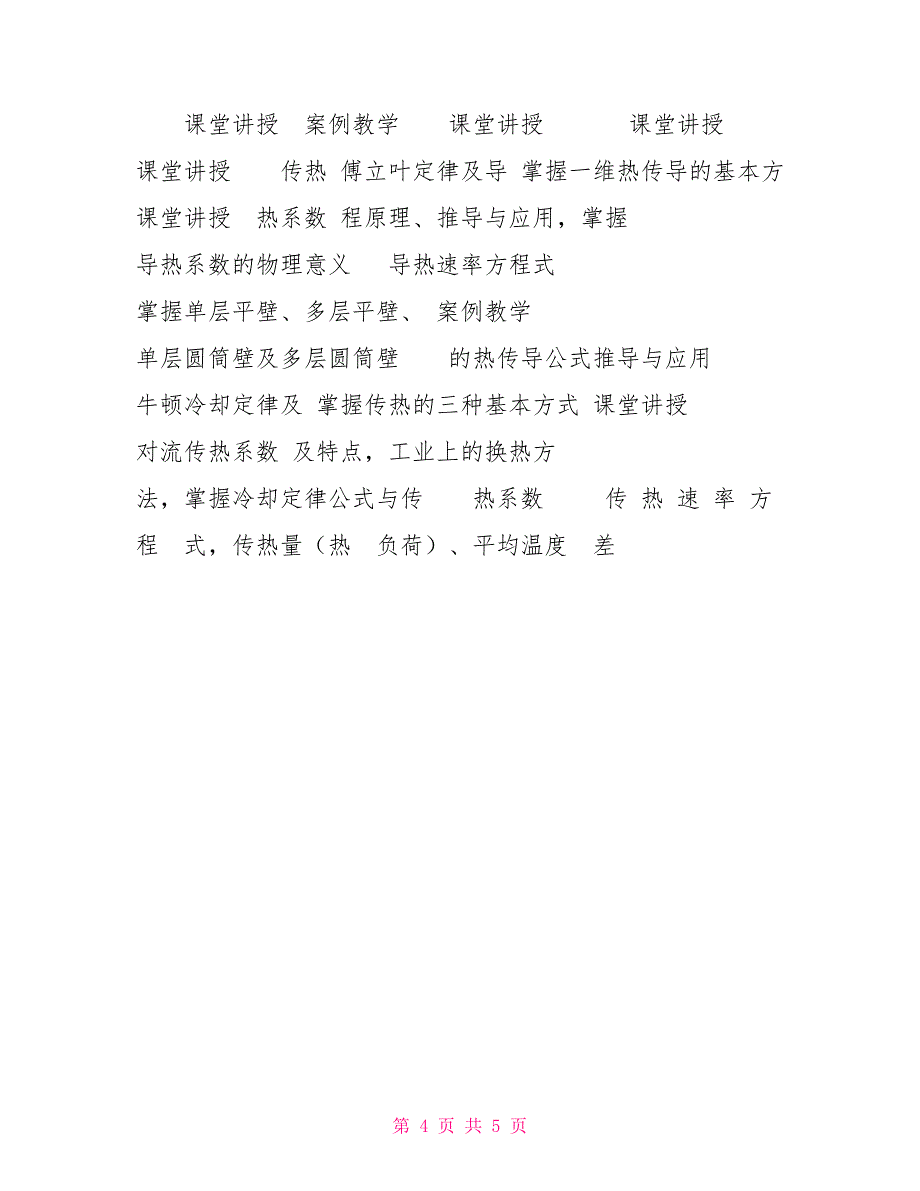 课堂讲授 案例教学 课堂讲授 课堂讲授
课堂讲授 传热 傅立叶定律及导 掌握一维热传导的基本方
课堂讲授 热系数 程原理、推导与应用，掌握
导热系数的物理意义 导热速率方程式
掌握单层平壁、多层平壁、 案例教学
单层圆筒壁及多层圆筒壁 的热传导公式推导与应用
牛顿冷却定律及 掌握传热的三种基本方式 课堂讲授
对流传热系数 及特点，工业上的换热方
法，掌握冷却定律公式与传 热系数 传 热 速 率 方
程 式，传热量（热 负荷）、平均温度 差
第 4 页 共 5 页